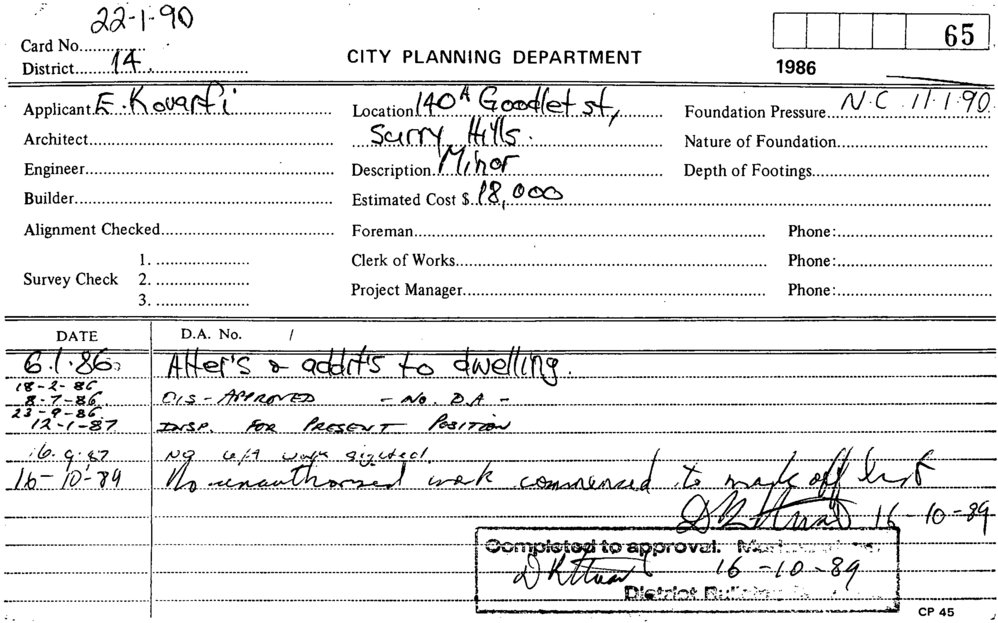 22-1-90
Card No...............
District......14..................
CITY PLANNING DEPARTMENT
65
1986
Applicant E. Kovarfi
Location 140A Goodlet st,
Foundation Pressure N.C 11.1.90.
Architect
Surry Hills.
Nature of Foundation
Engineer
Description Minor
Depth of Footings
Builder
Estimated Cost $ 18,000
Alignment Checked
Foreman
Phone:
Survey Check
1.
2.
3.
Clerk of Works
Phone:
Project Manager
Phone:
DATE
D.A. No. /
6.1.86. Alter's & addit's to dwelling.
18-2-86
8-7-86 CIS - APPROVED - No. D.A -
23-9-86
12-1-87 INSP. FOR PRESENT POSITION
16.9.87 work
16-10-89 No unauthorised work commenced to mark off list
16-10-89
Completed to approval.
16-10-89
District
CP 45